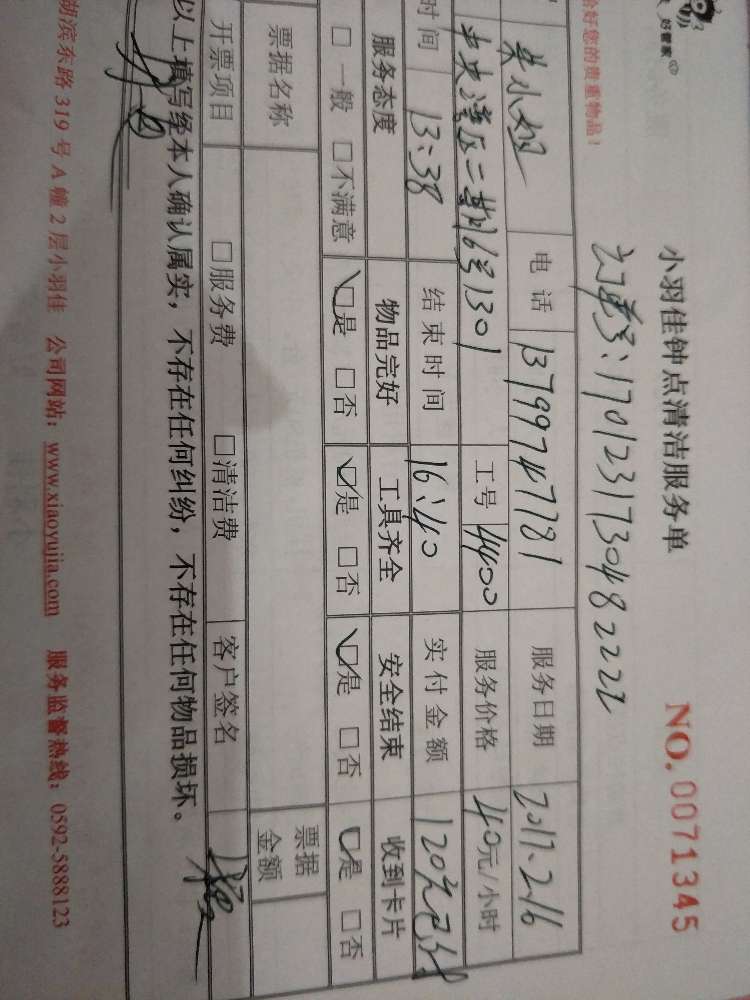 好管家
小羽佳钟点清洁服务单
NO. 0071345
好您的贵重物品!
订单号:17012317304822222
朱小姐 电话 13799747781 服务日期 2017.2.16
未央湾区二期16号1301 工号 4400 服务价格 40元/小时
时间 13:38 结束时间 16:40 实付金额 120元已付
服务态度 物品完好 工具齐全 安全结束 收到卡片
□一般 □不满意 ☑是 □否 ☑是 □否 ☑是 □否 ☑是 □否
票据名称 票据金额
开票项目 □服务费 □清洁费 客户签名
以上填写经本人确认属实,不存在任何纠纷,不存在任何物品损坏。
湖滨东路 319 号 A 幢 2 层小羽佳 公司网站:www.xiaoyujia.com 服务监督热线:0592-5888123